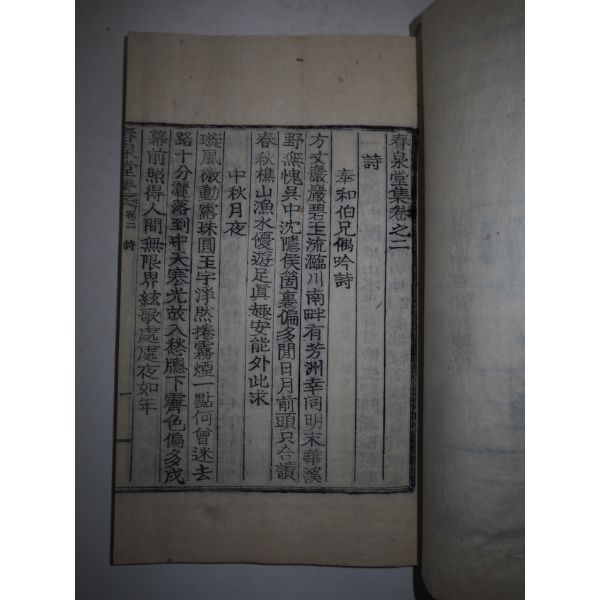 春泉堂集卷之二
詩
奉和伯兄偶吟詩
方丈巖巖碧玉流瀶川南畔有芳洲幸同明末華溪
野無愧吳中沈隱侯箇裏偏多閒日月前頭只合讀
春秋樵山漁水優遊足眞趣安能外此求
中秋月夜
璇風微動露珠圓玉宇浄然捲霧煙一點何曾迷去
路十分灑落到中天寒光故入愁牕下霽色偏多戍
幕前照得人間無限界絃歌處處夜如年
春泉堂集 卷二 詩 一